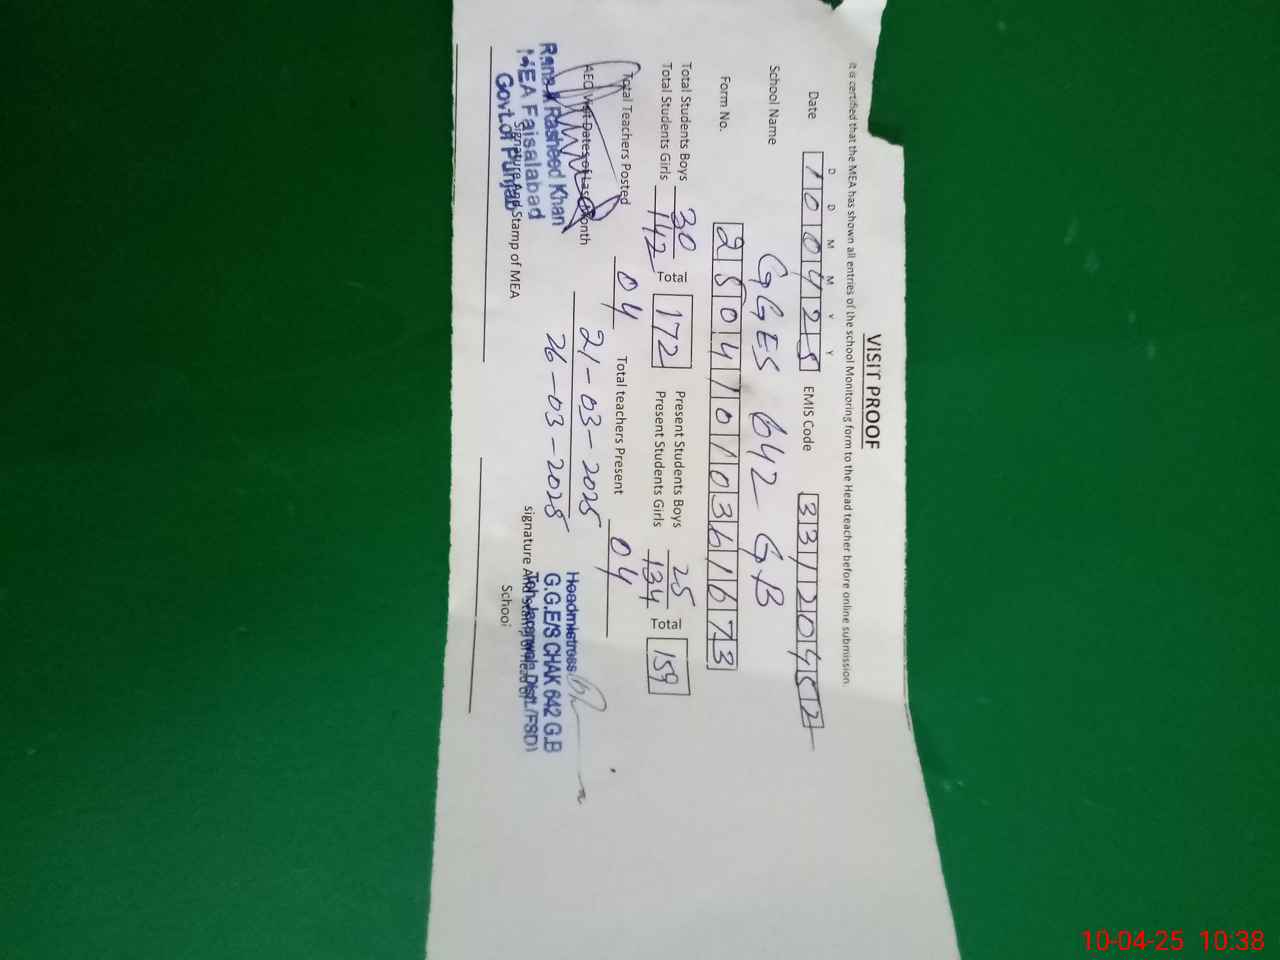 VISIT PROOF
It is certified that the MEA has shown all entries of the school Monitoring form to the Head teacher before online submission.
D D M M Y Y
Date 100425 EMIS Code 33120452
School Name GGES 642 GB
Form No. 25041010361673
Total Students Boys 30 Present Students Boys 25
Total Students Girls 142 Total 172 Present Students Girls 134 Total 159
Total Teachers Posted 04 Total teachers Present 04
AEO Visit Dates of Last Month 21-03-2025
26-03-2025
Rana Rasheed Khan
MEA Faisalabad
Govt.of Punjab
Signature And Stamp of MEA
Headmistress
G.G.E/S CHAK 642 G.B
Teh. Jaranwala Distt./FSD)
signature And Stamp of Head of
School
10-04-25 10:38